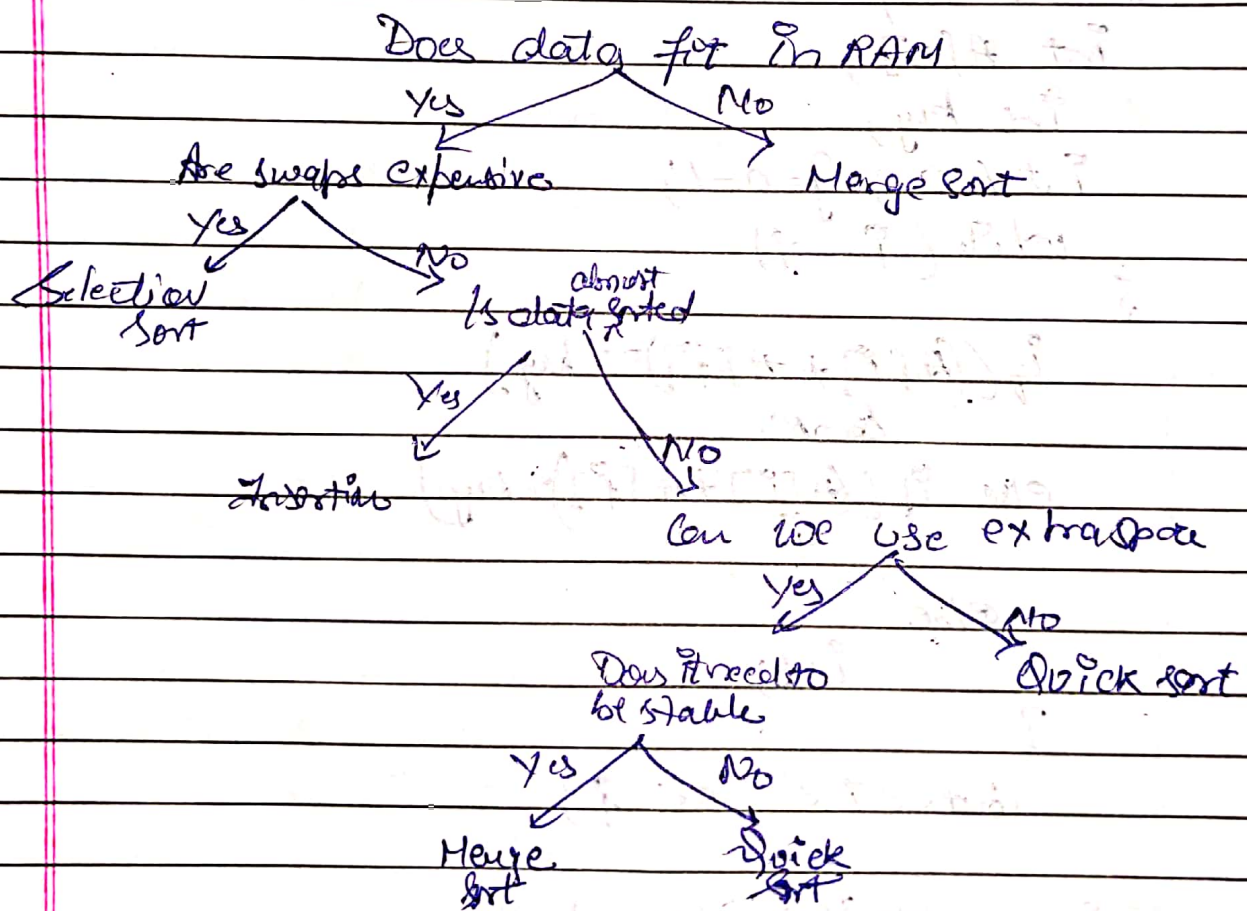 Does data fit in RAM
Yes
No
Are swaps expensive
Merge Sort
Yes
No
Selection
Sort
almost
Is data sorted
Yes
No
Insertion
Can we use extra space
Yes
No
Does it need to
be stable
Quick sort
Yes
No
Merge
Sort
Quick
Sort